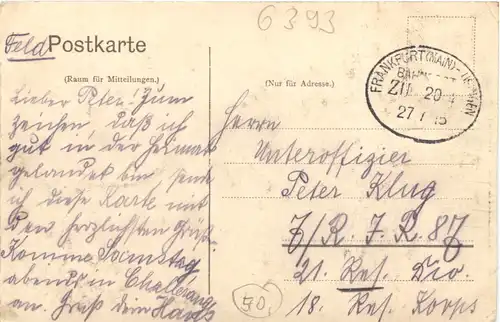 6393
Feld Postkarte
(Raum für Mitteilungen.)
Lieber Peter! Zum
zeichen, daß ich
gut in der Heimat
gelandet bin sende
ich diese Karte mit
den herzlichsten Grüßen
Komme Samstag
abends in Challerange
an. Gruß dein Hans
(Nur für Adresse.)
FRANKFURT (MAIN)
BAHNPOST
ZUG 20
27 15
Herrn
Unteroffizier
Peter Klug
7/R. J. R. 87
21. Res. Div.
18. Res. Korps
70.